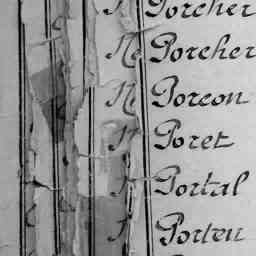 Porcher
N. Porcher
N. Porcon
Poret
Portal
Porteu